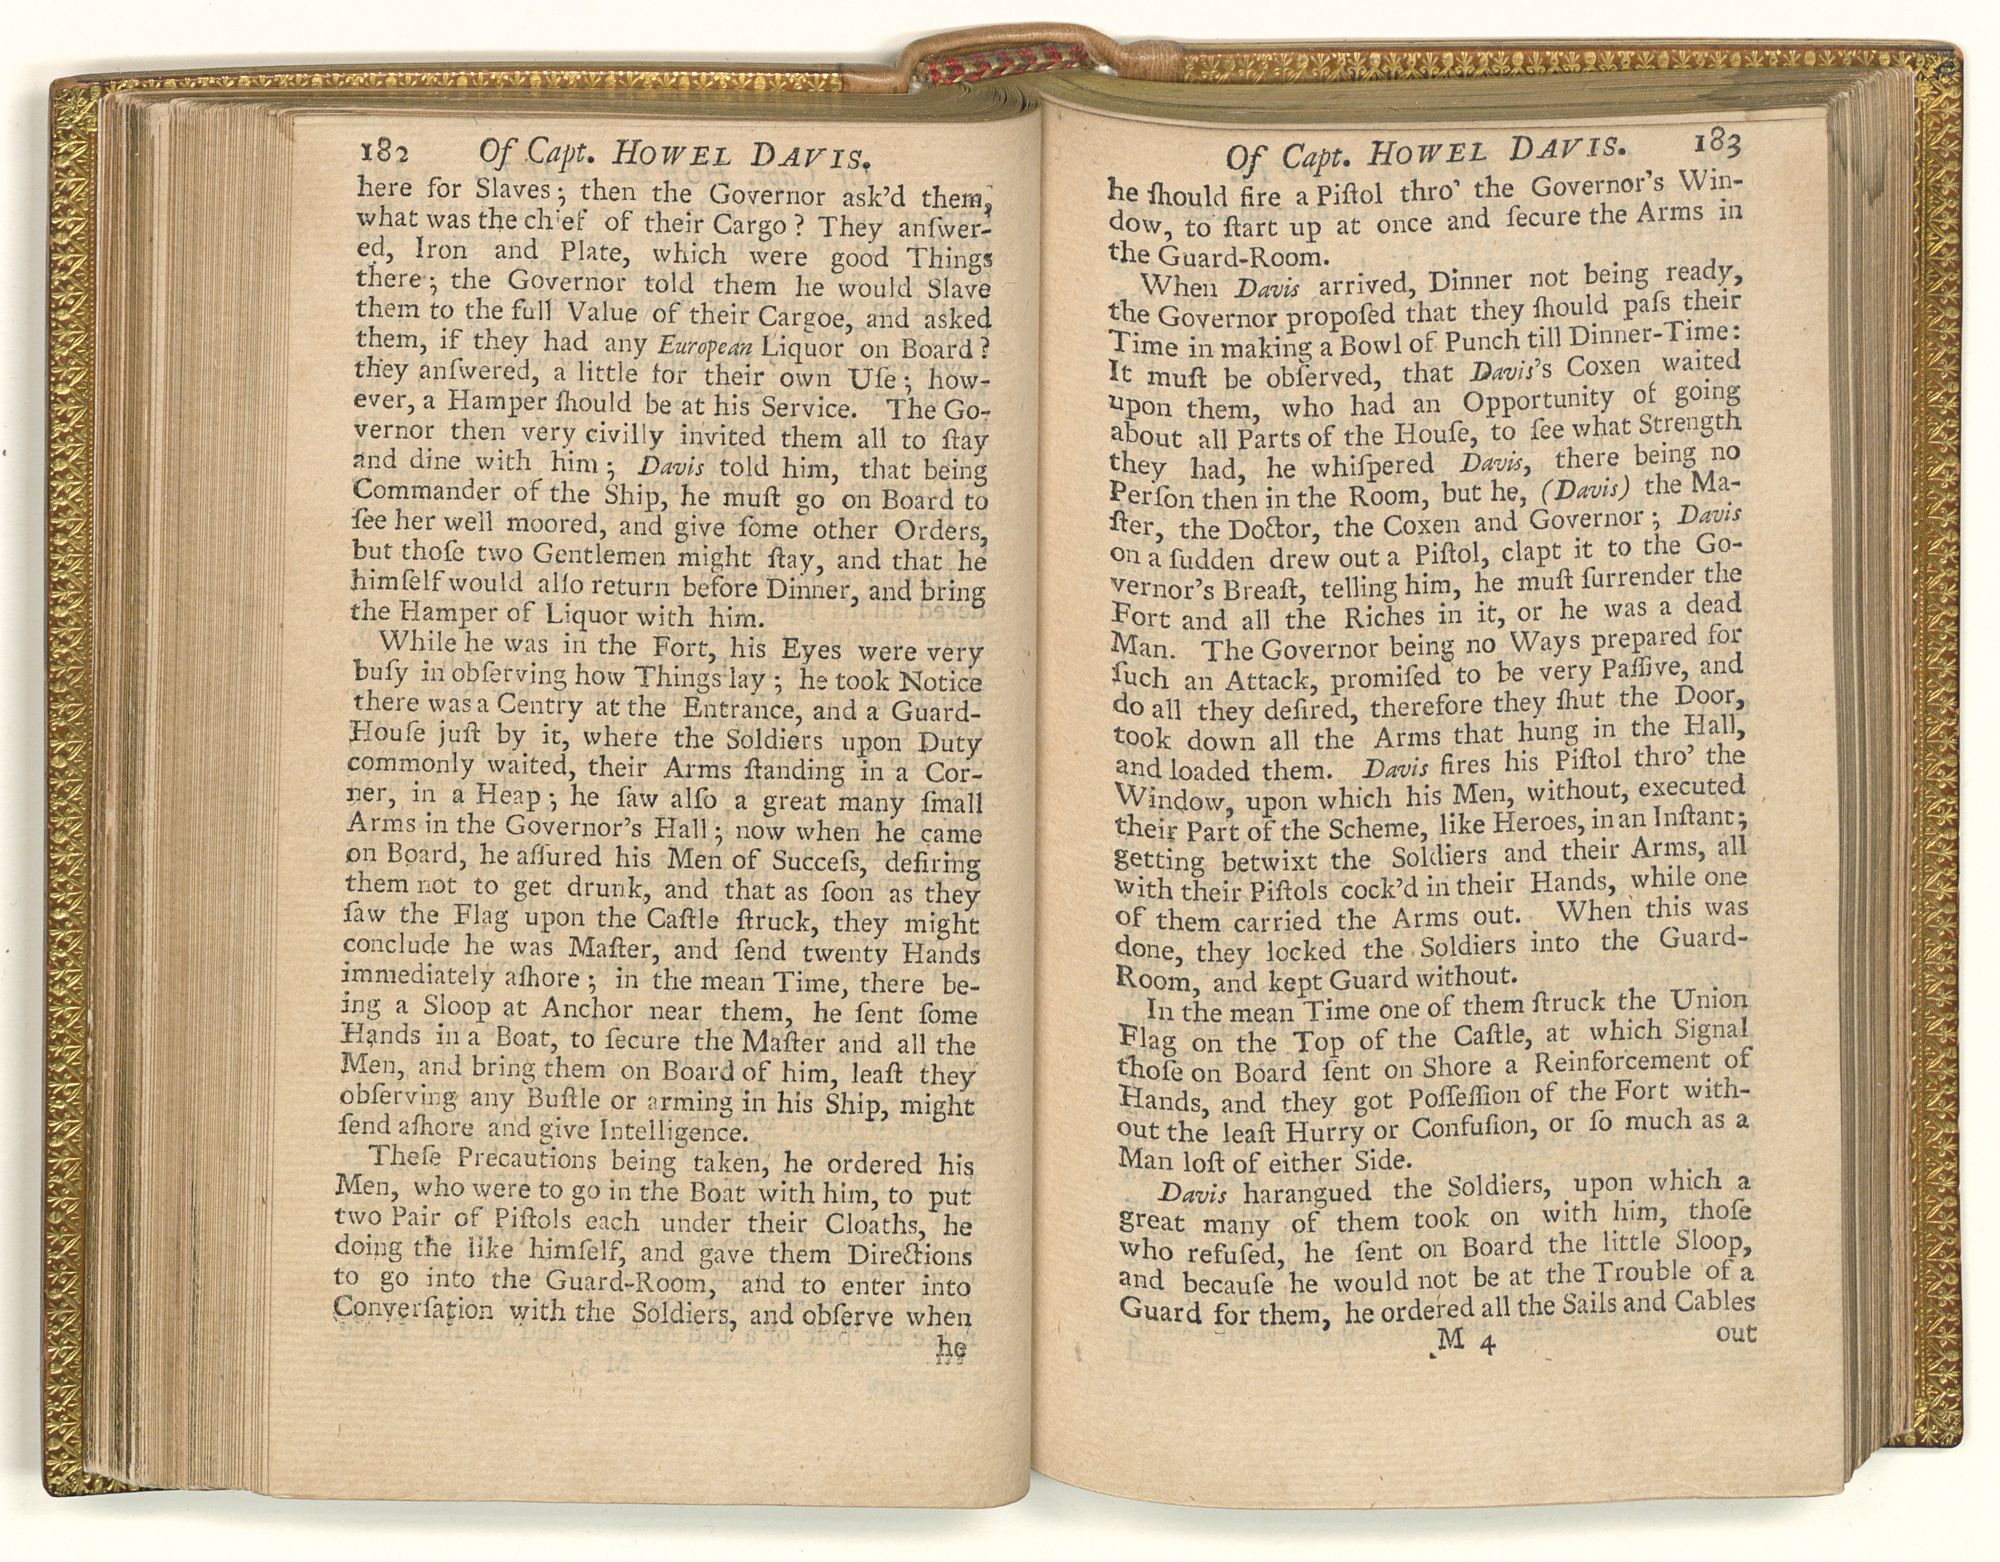 182 Of Capt. HOWEL DAVIS.
here for Slaves; then the Governor ask'd them,
what was the chief of their Cargo? They anſwer-
ed, Iron and Plate, which were good Things
there; the Governor told them he would Slave
them to the full Value of their Cargoe, and asked
them, if they had any European Liquor on Board?
they anſwered, a little for their own Uſe; how-
ever, a Hamper ſhould be at his Service. The Go-
vernor then very civilly invited them all to ſtay
and dine with him; Davis told him, that being
Commander of the Ship, he muſt go on Board to
ſee her well moored, and give ſome other Orders,
but thoſe two Gentlemen might ſtay, and that he
himſelf would alſo return before Dinner, and bring
the Hamper of Liquor with him.
While he was in the Fort, his Eyes were very
buſy in obſerving how Things lay; he took Notice
there was a Centry at the Entrance, and a Guard-
Houſe juſt by it, where the Soldiers upon Duty
commonly waited, their Arms ſtanding in a Cor-
ner, in a Heap; he ſaw alſo a great many ſmall
Arms in the Governor's Hall; now when he came
on Board, he aſſured his Men of Succeſs, deſiring
them not to get drunk, and that as ſoon as they
ſaw the Flag upon the Caſtle ſtruck, they might
conclude he was Maſter, and ſend twenty Hands
immediately aſhore; in the mean Time, there be-
ing a Sloop at Anchor near them, he ſent ſome
Hands in a Boat, to ſecure the Maſter and all the
Men, and bring them on Board of him, leaſt they
obſerving any Buſtle or arming in his Ship, might
ſend aſhore and give Intelligence.
Theſe Precautions being taken, he ordered his
Men, who were to go in the Boat with him, to put
two Pair of Piſtols each under their Cloaths, he
doing the like himſelf, and gave them Directions
to go into the Guard-Room, and to enter into
Converſation with the Soldiers, and obſerve when
he
Of Capt. HOWEL DAVIS. 183
he ſhould fire a Piſtol thro' the Governor's Win-
dow, to ſtart up at once and ſecure the Arms in
the Guard-Room.
When Davis arrived, Dinner not being ready,
the Governor propoſed that they ſhould paſs their
Time in making a Bowl of Punch till Dinner-Time:
It muſt be obſerved, that Davis's Coxen waited
upon them, who had an Opportunity of going
about all Parts of the Houſe, to ſee what Strength
they had, he whiſpered Davis, there being no
Perſon then in the Room, but he, (Davis) the Ma-
ſter, the Doctor, the Coxen and Governor; Davis
on a ſudden drew out a Piſtol, clapt it to the Go-
vernor's Breaſt, telling him, he muſt ſurrender the
Fort and all the Riches in it, or he was a dead
Man. The Governor being no Ways prepared for
ſuch an Attack, promiſed to be very Paſſive, and
do all they deſired, therefore they ſhut the Door,
took down all the Arms that hung in the Hall,
and loaded them. Davis fires his Piſtol thro' the
Window, upon which his Men, without, executed
their Part of the Scheme, like Heroes, in an Inſtant;
getting betwixt the Soldiers and their Arms, all
with their Piſtols cock'd in their Hands, while one
of them carried the Arms out. When this was
done, they locked the Soldiers into the Guard-
Room, and kept Guard without.
In the mean Time one of them ſtruck the Union
Flag on the Top of the Caſtle, at which Signal
thoſe on Board ſent on Shore a Reinforcement of
Hands, and they got Poſſeſſion of the Fort with-
out the leaſt Hurry or Confuſion, or ſo much as a
Man loſt of either Side.
Davis harangued the Soldiers, upon which a
great many of them took on with him, thoſe
who refuſed, he ſent on Board the little Sloop,
and becauſe he would not be at the Trouble of a
Guard for them, he ordered all the Sails and Cables
M 4 out